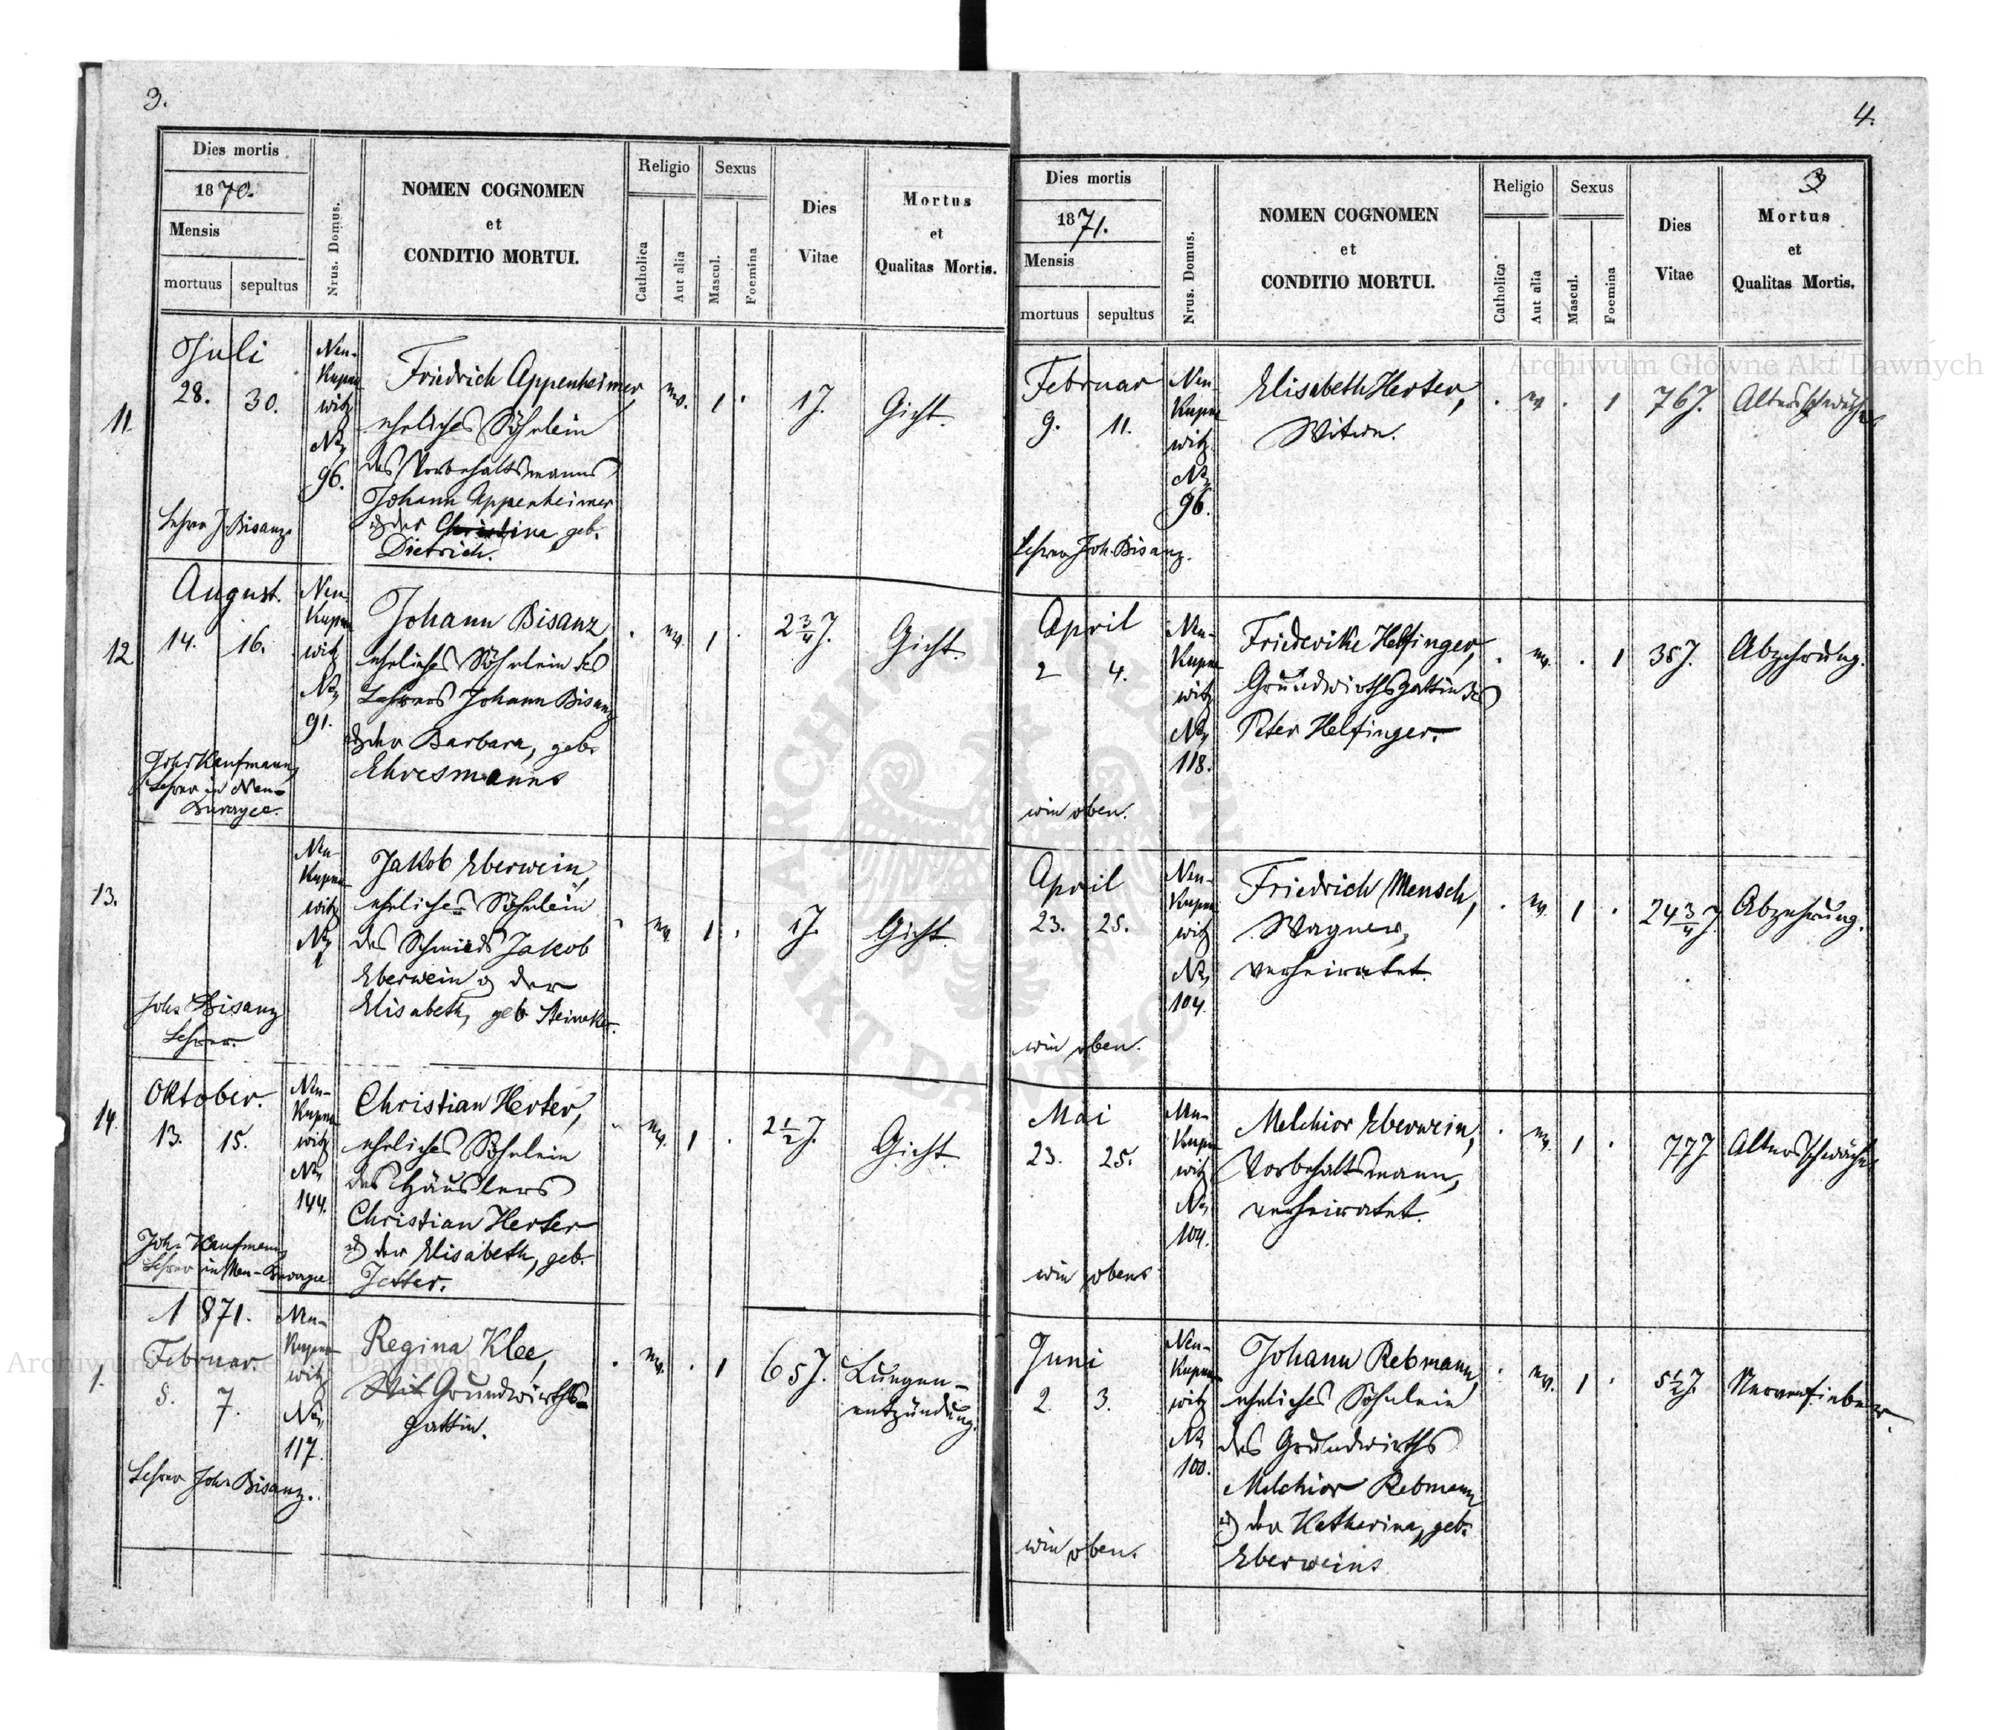 3.
Dies mortis
1870.
Mensis
mortuus
sepultus
Nrus. Domus.
NOMEN COGNOMEN
et
CONDITIO MORTUI.
Religio
Catholica
Aut alia
Sexus
Mascul.
Foemina
Dies
Vitae
Mortus
et
Qualitas Mortis.
11.
Juli
28. 30.
Neu-
Kupno
witz
No
96.
Friedrich Appenheimer,
eheliches Söhnlein
des Vorbehaltsmanns
Johann Appenheimer
& der Christina, geb.
Dietrich.
ev. 1 .
1 J.
Gicht.
Lehrer J. Bisanz.
12
August.
14. 16.
Neu
Kupno
witz
No
91.
Johann Bisanz,
eheliches Söhnlein des
Lehrers Johann Bisanz
& der Barbara, geb.
Ehresmanns
. ev. 1 .
2 3/4 J.
Gicht.
Joh. Kaufmann,
Lehrer in Neu-
13.
Neu-
Kupno
witz
No
Jakob Eberwein,
eheliches Söhnlein
des Schmieds Jakob
Eberwein & der
Elisabeth, geb.
. ev. 1 .
1 J.
Gicht.
Joh. Bisanz
Lehrer.
14.
Oktober.
13. 15.
Neu-
Kupno
witz
No
144.
Christian Herter,
eheliches Söhnlein
des Häuslers
Christian Herter
& der Elisabeth, geb.
Jetter.
. ev. 1 .
2 1/2 J.
Gicht.
Joh. Kaufmann,
Lehrer in Neu-
1.
1871.
Februar.
5. 7.
Neu-
Kupno
witz
No
117.
Regina Klee,
Grundwirths-
gattin.
. ev. . 1
65 J.
Lungen-
entzündung.
Lehrer Joh. Bisanz.
4.
3
Dies mortis
1871.
Mensis
mortuus
sepultus
Nrus. Domus.
NOMEN COGNOMEN
et
CONDITIO MORTUI.
Religio
Catholica
Aut alia
Sexus
Mascul.
Foemina
Dies
Vitae
Mortus
et
Qualitas Mortis.
Februar
9. 11.
Neu-
Kupno
witz
No
96.
Elisabeth Herter,
Witwe.
. ev. . 1
76 J.
Altersschwäche
Lehrer Joh. Bisanz.
April
2 4.
Neu-
Kupno
witz
No
118.
Friederike Helfinger,
Grundwirthsgattin des
Peter Helfinger.
. ev. . 1
Abzehrung.
wie oben.
April
23. 25.
Neu-
Kupno
witz
No
104.
Friedrich Mensch,
Wagner,
verheiratet.
. ev. 1 .
24 3/4 J.
Abzehrung.
wie oben.
Mai
23. 25.
Neu-
Kupno
witz
No
104.
Melchior Eberwein,
Vorbehaltsmann,
verheiratet.
. ev. 1 .
77 J.
Altersschwäche
wie oben
Juni
2. 3.
Neu-
Kupno
witz
No
100.
Johann Rebmann,
eheliches Söhnlein
des Grundwirths
Melchior Rebmann
& der Katharina, geb.
Eberweins
. ev. 1 .
5 1/2 J.
Nervenfieber.
wie oben.
Archiwum Główne Akt Dawnych
Archiwum Główne Akt Dawnych
ARCHIWUM GŁÓWNE
AKT DAWNYCH